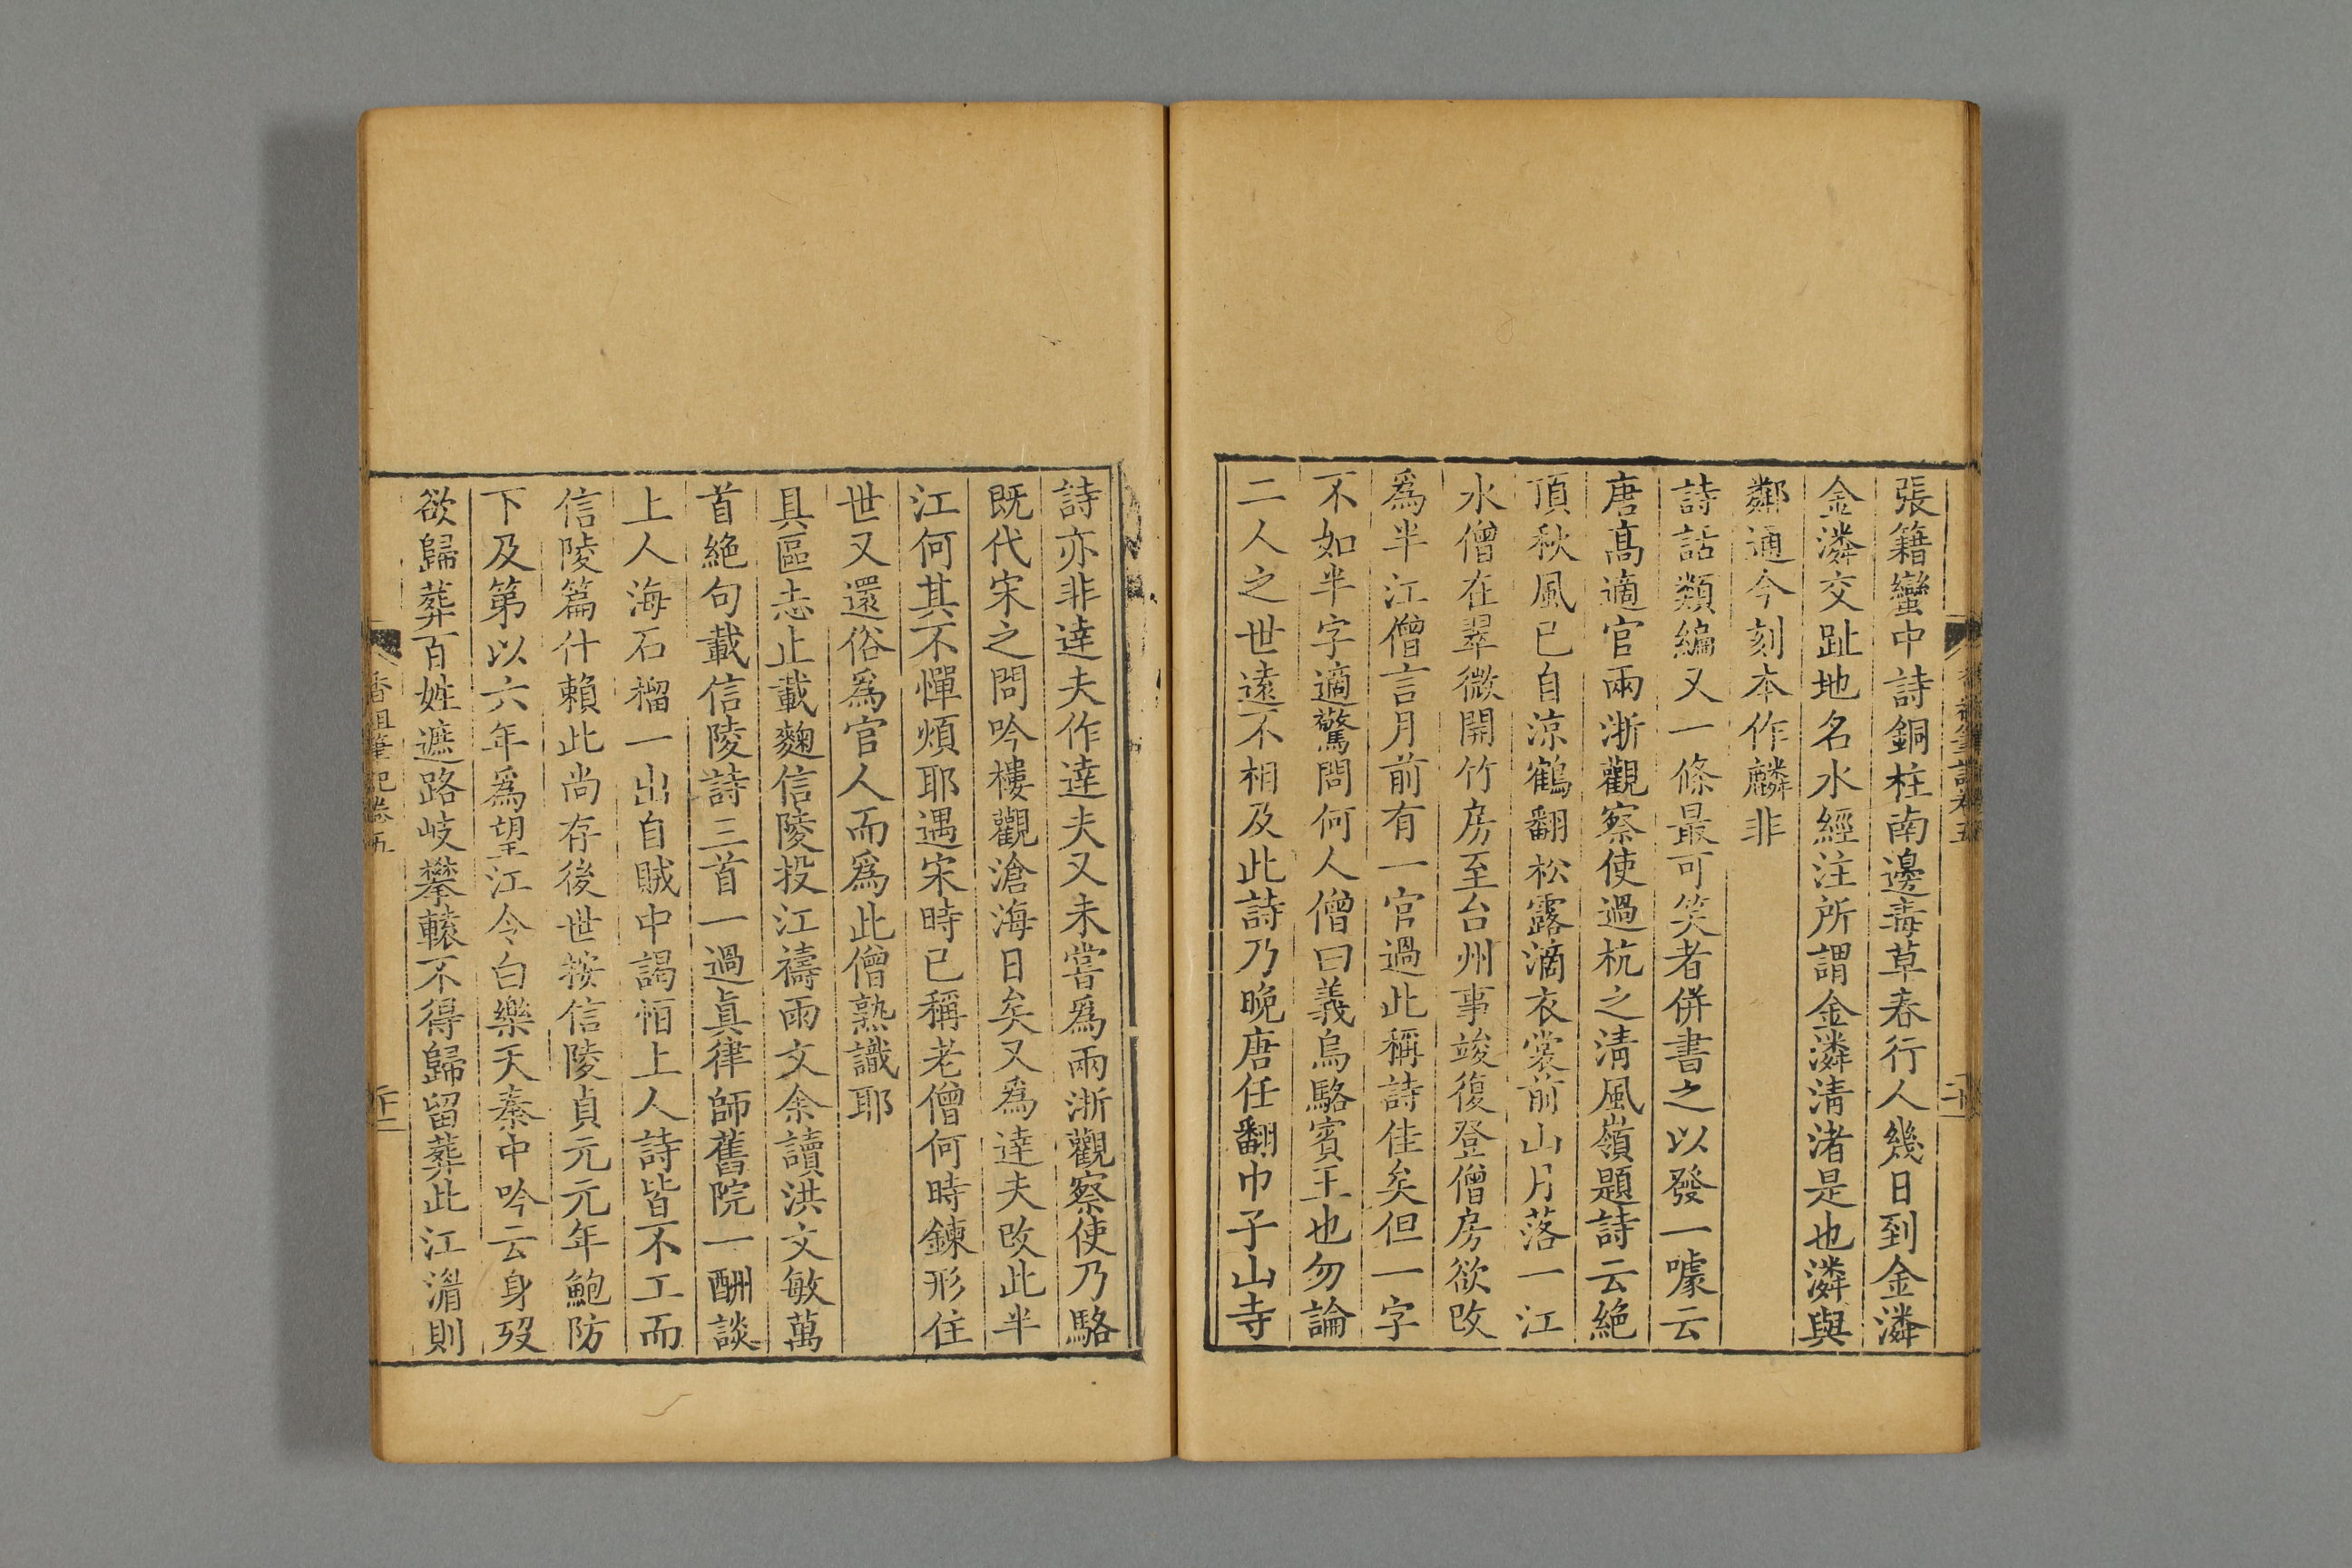 張籍蠻中詩銅柱南邊毒草春行人幾日到金潾
金潾交趾地名水經注所謂金潾清渚是也潾與
鄰通今刻本作麟非
詩話類編又一條最可笑者併書之以發一噱云
唐高適官兩浙觀察使過杭之清風嶺題詩云絕
頂秋風已自涼鶴翻松露滴衣裳前山月落一江
水僧在翠微開竹房至台州事竣復登僧房欲改
爲半江僧言月前有一官過此稱詩佳矣但一字
不如半字適驚問何人僧曰義烏駱賓王也勿論
二人之世遠不相及此詩乃晚唐任翻巾子山寺
詩亦非達夫作達夫又未嘗爲兩浙觀察使乃駱
既代宋之問吟樓觀滄海日矣又爲達夫改此半
江何其不憚煩耶遇宋時已稱老僧何時鍊形住
世又還俗爲官人而爲此僧熟識耶
具區志止載麴信陵投江禱雨文余讀洪文敏萬
首絕句載信陵詩三首一過眞律師舊院一酬談
上人海石榴一出自賊中謁恒上人詩皆不工而
信陵篇什賴此尚存後世按信陵貞元元年鮑防
下及第以六年爲望江令白樂天秦中吟云身歿
欲歸葬百姓遮路岐攀轅不得歸留葬此江湄則
香祖筆記卷五